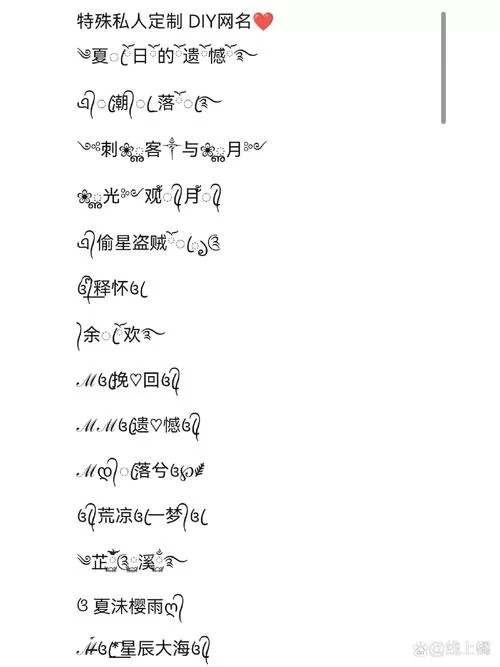 特殊私人定制 DIY网名❤️
༄夏ꦿ℘日ོ的ོ遗ོ憾ོ࿐
এ᭄潮᭄落ོ࿐
༺刺❀ൢ客༒与❀ൢ月༻
❀ൢ光༻观᭄月᭄
এ᭄偷星盗贼ོღ
ঔৣ释怀ঔৣ
᭄余ོ欢࿐
ℳঔৣ挽♡回ঔৣ
ℳℳঔৣ遗♡憾ঔৣ
ℳღ᭄落兮ঔৣ℘
ঔৣ荒凉ঔৣ一梦᭄ঔৣ
༄芷ꦿ溪ꦿ࿐
ও 夏沫樱雨ღ᭄
ℳ๓ঔৣ星辰大海ঔৣ
@线上橘